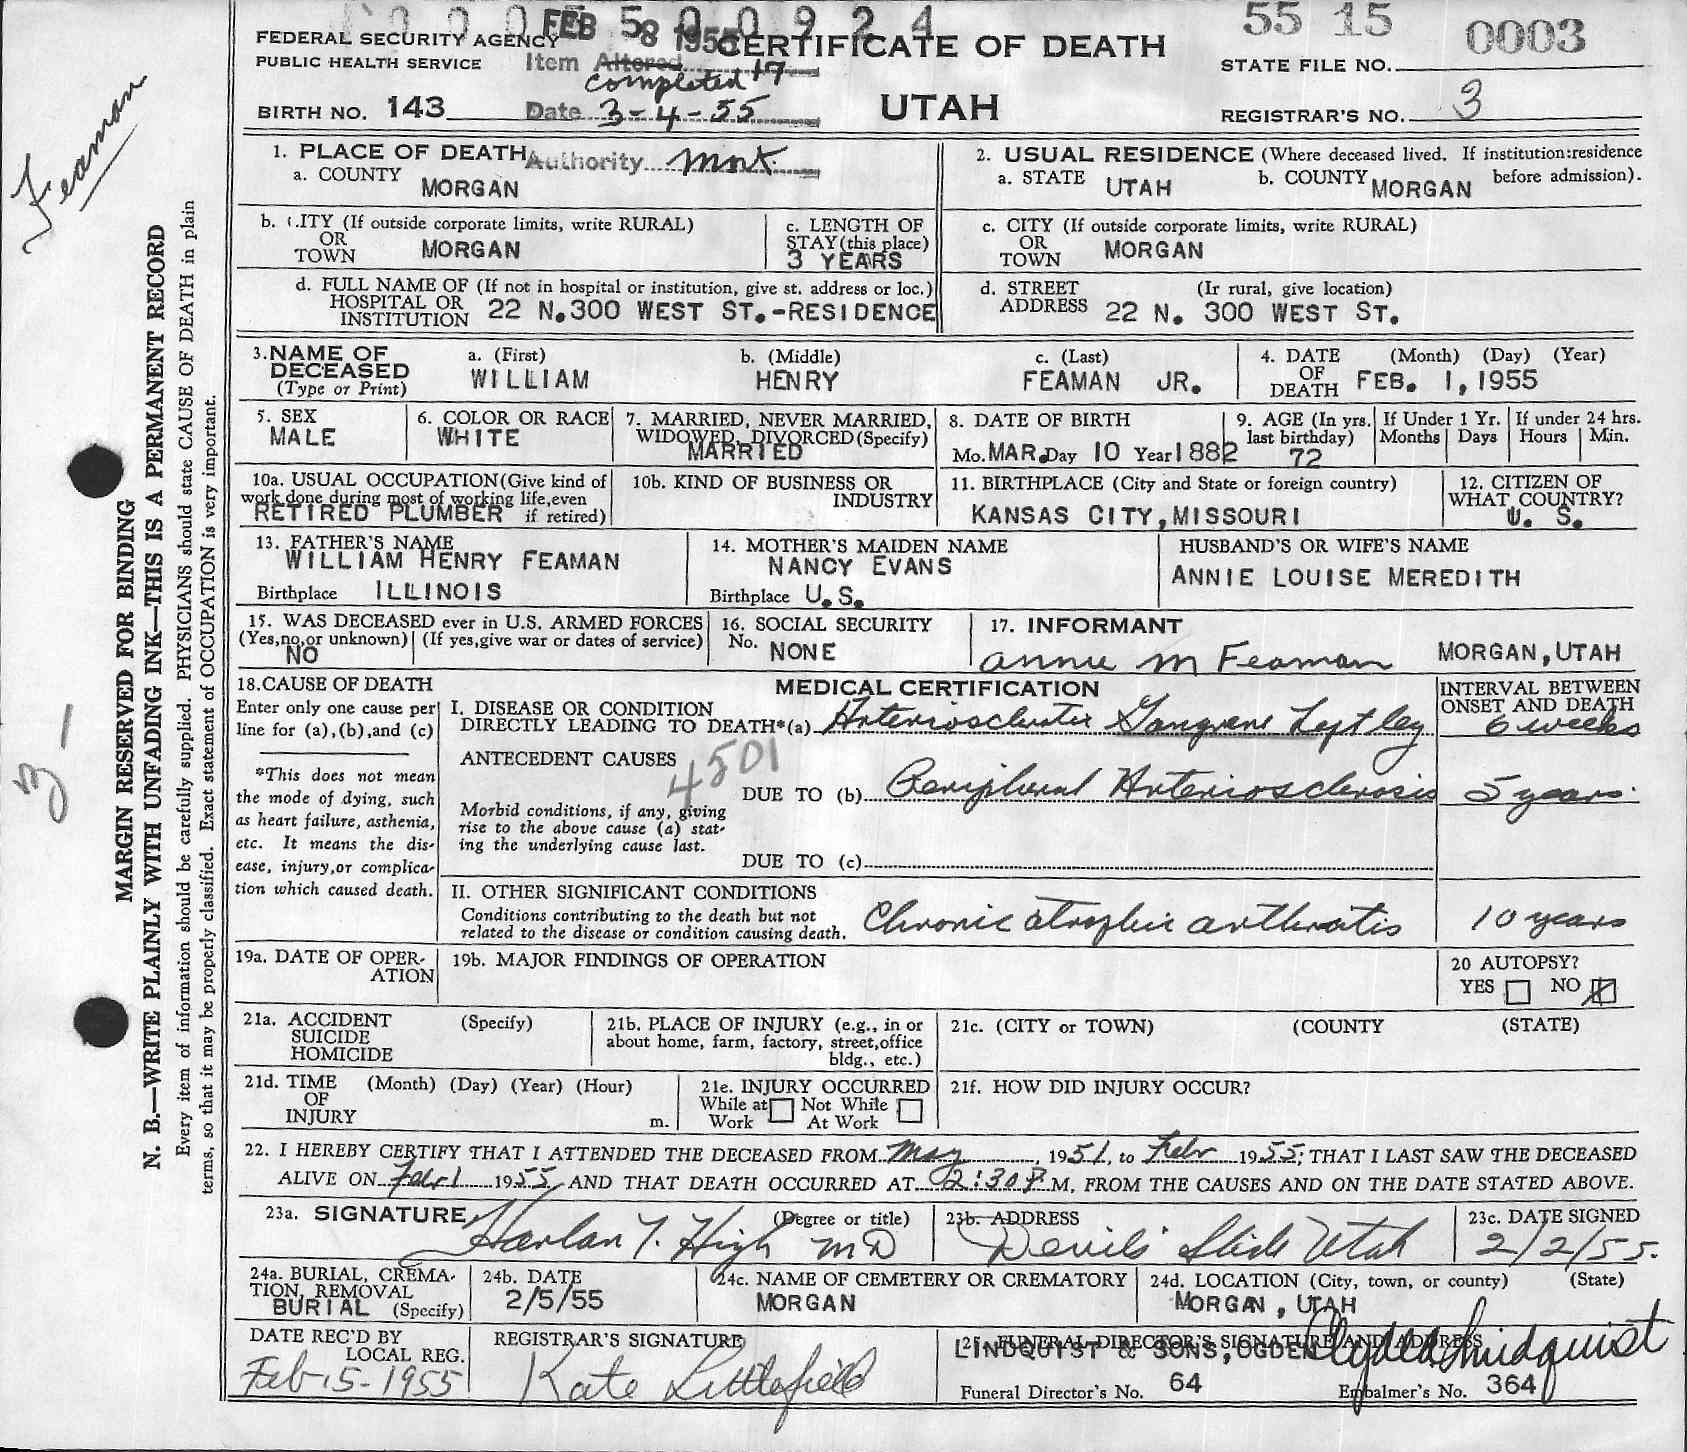 FEB 8 1955
0 0 0 5 0 0 9 2 4
55 15
0003
FEDERAL SECURITY AGENCY
PUBLIC HEALTH SERVICE
CERTIFICATE OF DEATH
UTAH
Item Altered 17
completed
Date 3-4-55
Authority
STATE FILE NO.
BIRTH NO. 143
REGISTRAR'S NO. 3
Feaman
MARGIN RESERVED FOR BINDING
N. B.—WRITE PLAINLY WITH UNFADING INK—THIS IS A PERMANENT RECORD
Every item of information should be carefully supplied. PHYSICIANS should state CAUSE OF DEATH in plain
terms, so that it may be properly classified. Exact statement of OCCUPATION is very important.
1. PLACE OF DEATH
a. COUNTY MORGAN
2. USUAL RESIDENCE (Where deceased lived. If institution:residence
before admission).
a. STATE UTAH b. COUNTY MORGAN
b. CITY (If outside corporate limits, write RURAL)
OR
TOWN MORGAN
c. LENGTH OF
STAY (this place)
3 YEARS
c. CITY (If outside corporate limits, write RURAL)
OR
TOWN MORGAN
d. FULL NAME OF (If not in hospital or institution, give st. address or loc.)
HOSPITAL OR
INSTITUTION 22 N.300 WEST ST.-RESIDENCE
d. STREET (Ir rural, give location)
ADDRESS 22 N. 300 WEST ST.
3. NAME OF
DECEASED
(Type or Print)
a. (First) b. (Middle) c. (Last)
WILLIAM HENRY FEAMAN JR.
4. DATE (Month) (Day) (Year)
OF
DEATH FEB. 1, 1955
5. SEX
MALE
6. COLOR OR RACE
WHITE
7. MARRIED, NEVER MARRIED,
WIDOWED, DIVORCED (Specify)
MARRIED
8. DATE OF BIRTH
Mo. MAR. Day 10 Year 1882
9. AGE (In yrs.
last birthday)
72
If Under 1 Yr.
Months Days
If under 24 hrs.
Hours Min.
10a. USUAL OCCUPATION (Give kind of
work done during most of working life, even
RETIRED PLUMBER if retired)
10b. KIND OF BUSINESS OR
INDUSTRY
11. BIRTHPLACE (City and State or foreign country)
KANSAS CITY, MISSOURI
12. CITIZEN OF
WHAT COUNTRY?
U. S.
13. FATHER'S NAME
WILLIAM HENRY FEAMAN
Birthplace ILLINOIS
14. MOTHER'S MAIDEN NAME
NANCY EVANS
Birthplace U.S.
HUSBAND'S OR WIFE'S NAME
ANNIE LOUISE MEREDITH
15. WAS DECEASED ever in U.S. ARMED FORCES
(Yes, no, or unknown) (If yes, give war or dates of service)
NO
16. SOCIAL SECURITY
No. NONE
17. INFORMANT
Annie M Feaman MORGAN, UTAH
18. CAUSE OF DEATH
Enter only one cause per
line for (a), (b), and (c)
*This does not mean
the mode of dying, such
as heart failure, asthenia,
etc. It means the dis-
ease, injury, or complica-
tion which caused death.
MEDICAL CERTIFICATION
INTERVAL BETWEEN
ONSET AND DEATH
I. DISEASE OR CONDITION
DIRECTLY LEADING TO DEATH* (a) Arteriosclerotic Gangrene Left leg 6 weeks
4501
ANTECEDENT CAUSES
DUE TO (b) Peripheral Arteriosclerosis 5 years
Morbid conditions, if any, giving
rise to the above cause (a) stat-
ing the underlying cause last.
DUE TO (c)
II. OTHER SIGNIFICANT CONDITIONS
Conditions contributing to the death but not
related to the disease or condition causing death. Chronic atrophic arthritis 10 years
19a. DATE OF OPER-
ATION
19b. MAJOR FINDINGS OF OPERATION
20 AUTOPSY?
YES NO X
21a. ACCIDENT (Specify)
SUICIDE
HOMICIDE
21b. PLACE OF INJURY (e.g., in or
about home, farm, factory, street, office
bldg., etc.)
21c. (CITY or TOWN) (COUNTY (STATE)
21d. TIME (Month) (Day) (Year) (Hour)
OF
INJURY m.
21e. INJURY OCCURRED
While at Not While
Work At Work
21f. HOW DID INJURY OCCUR?
22. I HEREBY CERTIFY THAT I ATTENDED THE DECEASED FROM May, 1951, to Febr 1955; THAT I LAST SAW THE DECEASED
ALIVE ON Febr 1 1955, AND THAT DEATH OCCURRED AT 2:30 P. M, FROM THE CAUSES AND ON THE DATE STATED ABOVE.
23a. SIGNATURE (Degree or title)
Harlan Y. High MD
23b. ADDRESS
Devils Slide Utah
23c. DATE SIGNED
2/2/55.
24a. BURIAL, CREMA-
TION, REMOVAL
BURIAL (Specify)
24b. DATE
2/5/55
24c. NAME OF CEMETERY OR CREMATORY
MORGAN
24d. LOCATION (City, town, or county) (State)
MORGAN, UTAH
DATE REC'D BY
LOCAL REG.
Feb. 5-1955
REGISTRAR'S SIGNATURE
Kate Littlefield
25. FUNERAL DIRECTOR'S SIGNATURE AND ADDRESS
LINDQUIST & SONS, OGDEN
Funeral Director's No. 64 Embalmer's No. 364